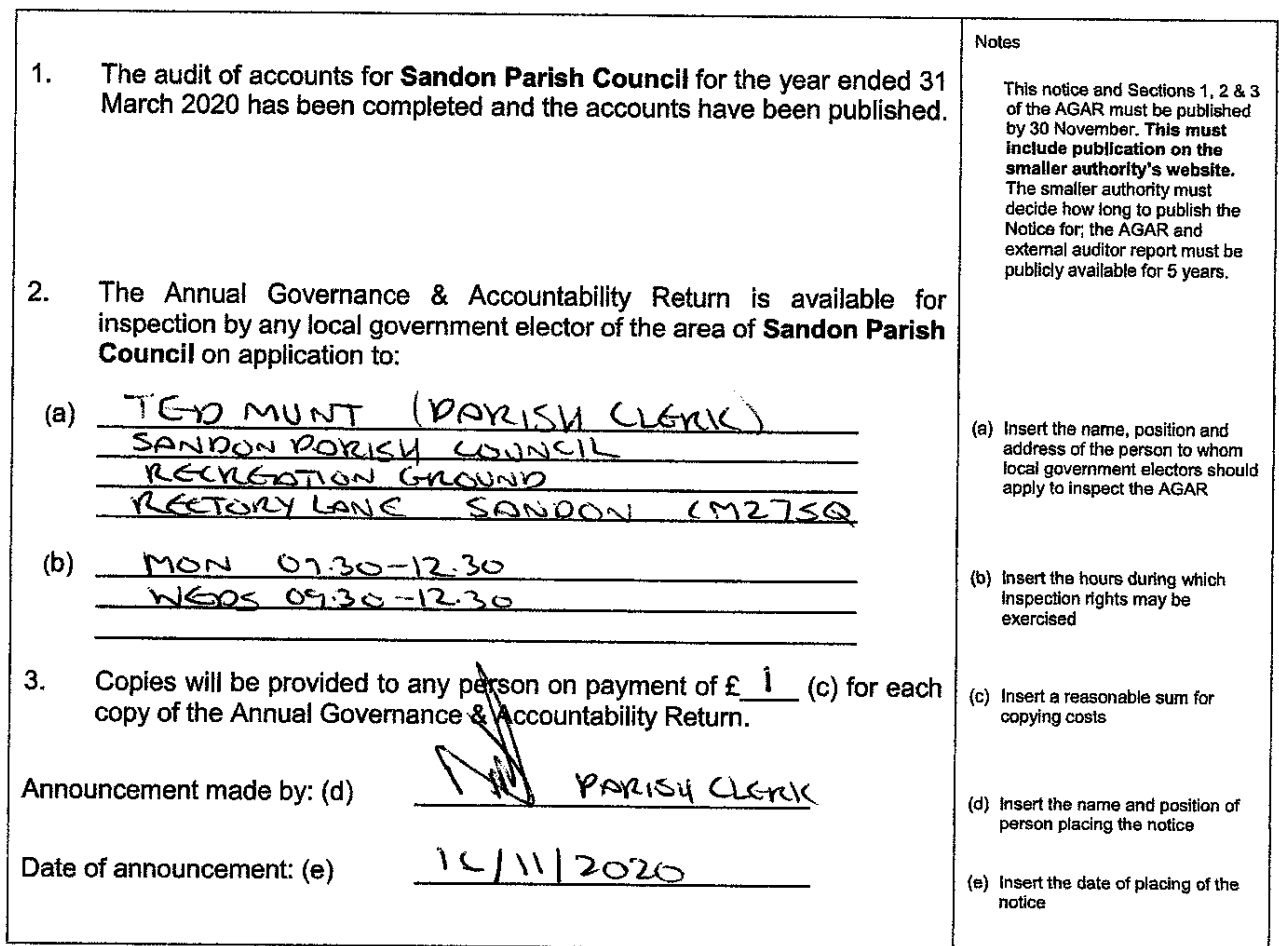 1. The audit of accounts for Sandon Parish Council for the year ended 31
March 2020 has been completed and the accounts have been published.
2. The Annual Governance & Accountability Return is available for
inspection by any local government elector of the area of Sandon Parish
Council on application to:
(a) TED MUNT (PARISH CLERK)
SANDON PARISH COUNCIL
RECREATION GROUND
RECTORY LANE SANDON CM27SQ
(b) MON 09.30-12.30
WEDS 09.30-12.30
3. Copies will be provided to any person on payment of £ 1 (c) for each
copy of the Annual Governance & Accountability Return.
Announcement made by: (d) PARISH CLERK
Date of announcement: (e) /11/2020
Notes
This notice and Sections 1, 2 & 3
of the AGAR must be published
by 30 November. This must
include publication on the
smaller authority's website.
The smaller authority must
decide how long to publish the
Notice for; the AGAR and
external auditor report must be
publicly available for 5 years.
(a) Insert the name, position and
address of the person to whom
local government electors should
apply to inspect the AGAR
(b) Insert the hours during which
inspection rights may be
exercised
(c) Insert a reasonable sum for
copying costs
(d) Insert the name and position of
person placing the notice
(e) Insert the date of placing of the
notice